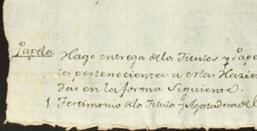 Papeles Hago entrega delos Titulos y Pape
les pertenecientes a estas Hazien
das en la forma Siguiente.
1 Testimonio dela Titulos y Agostadero del